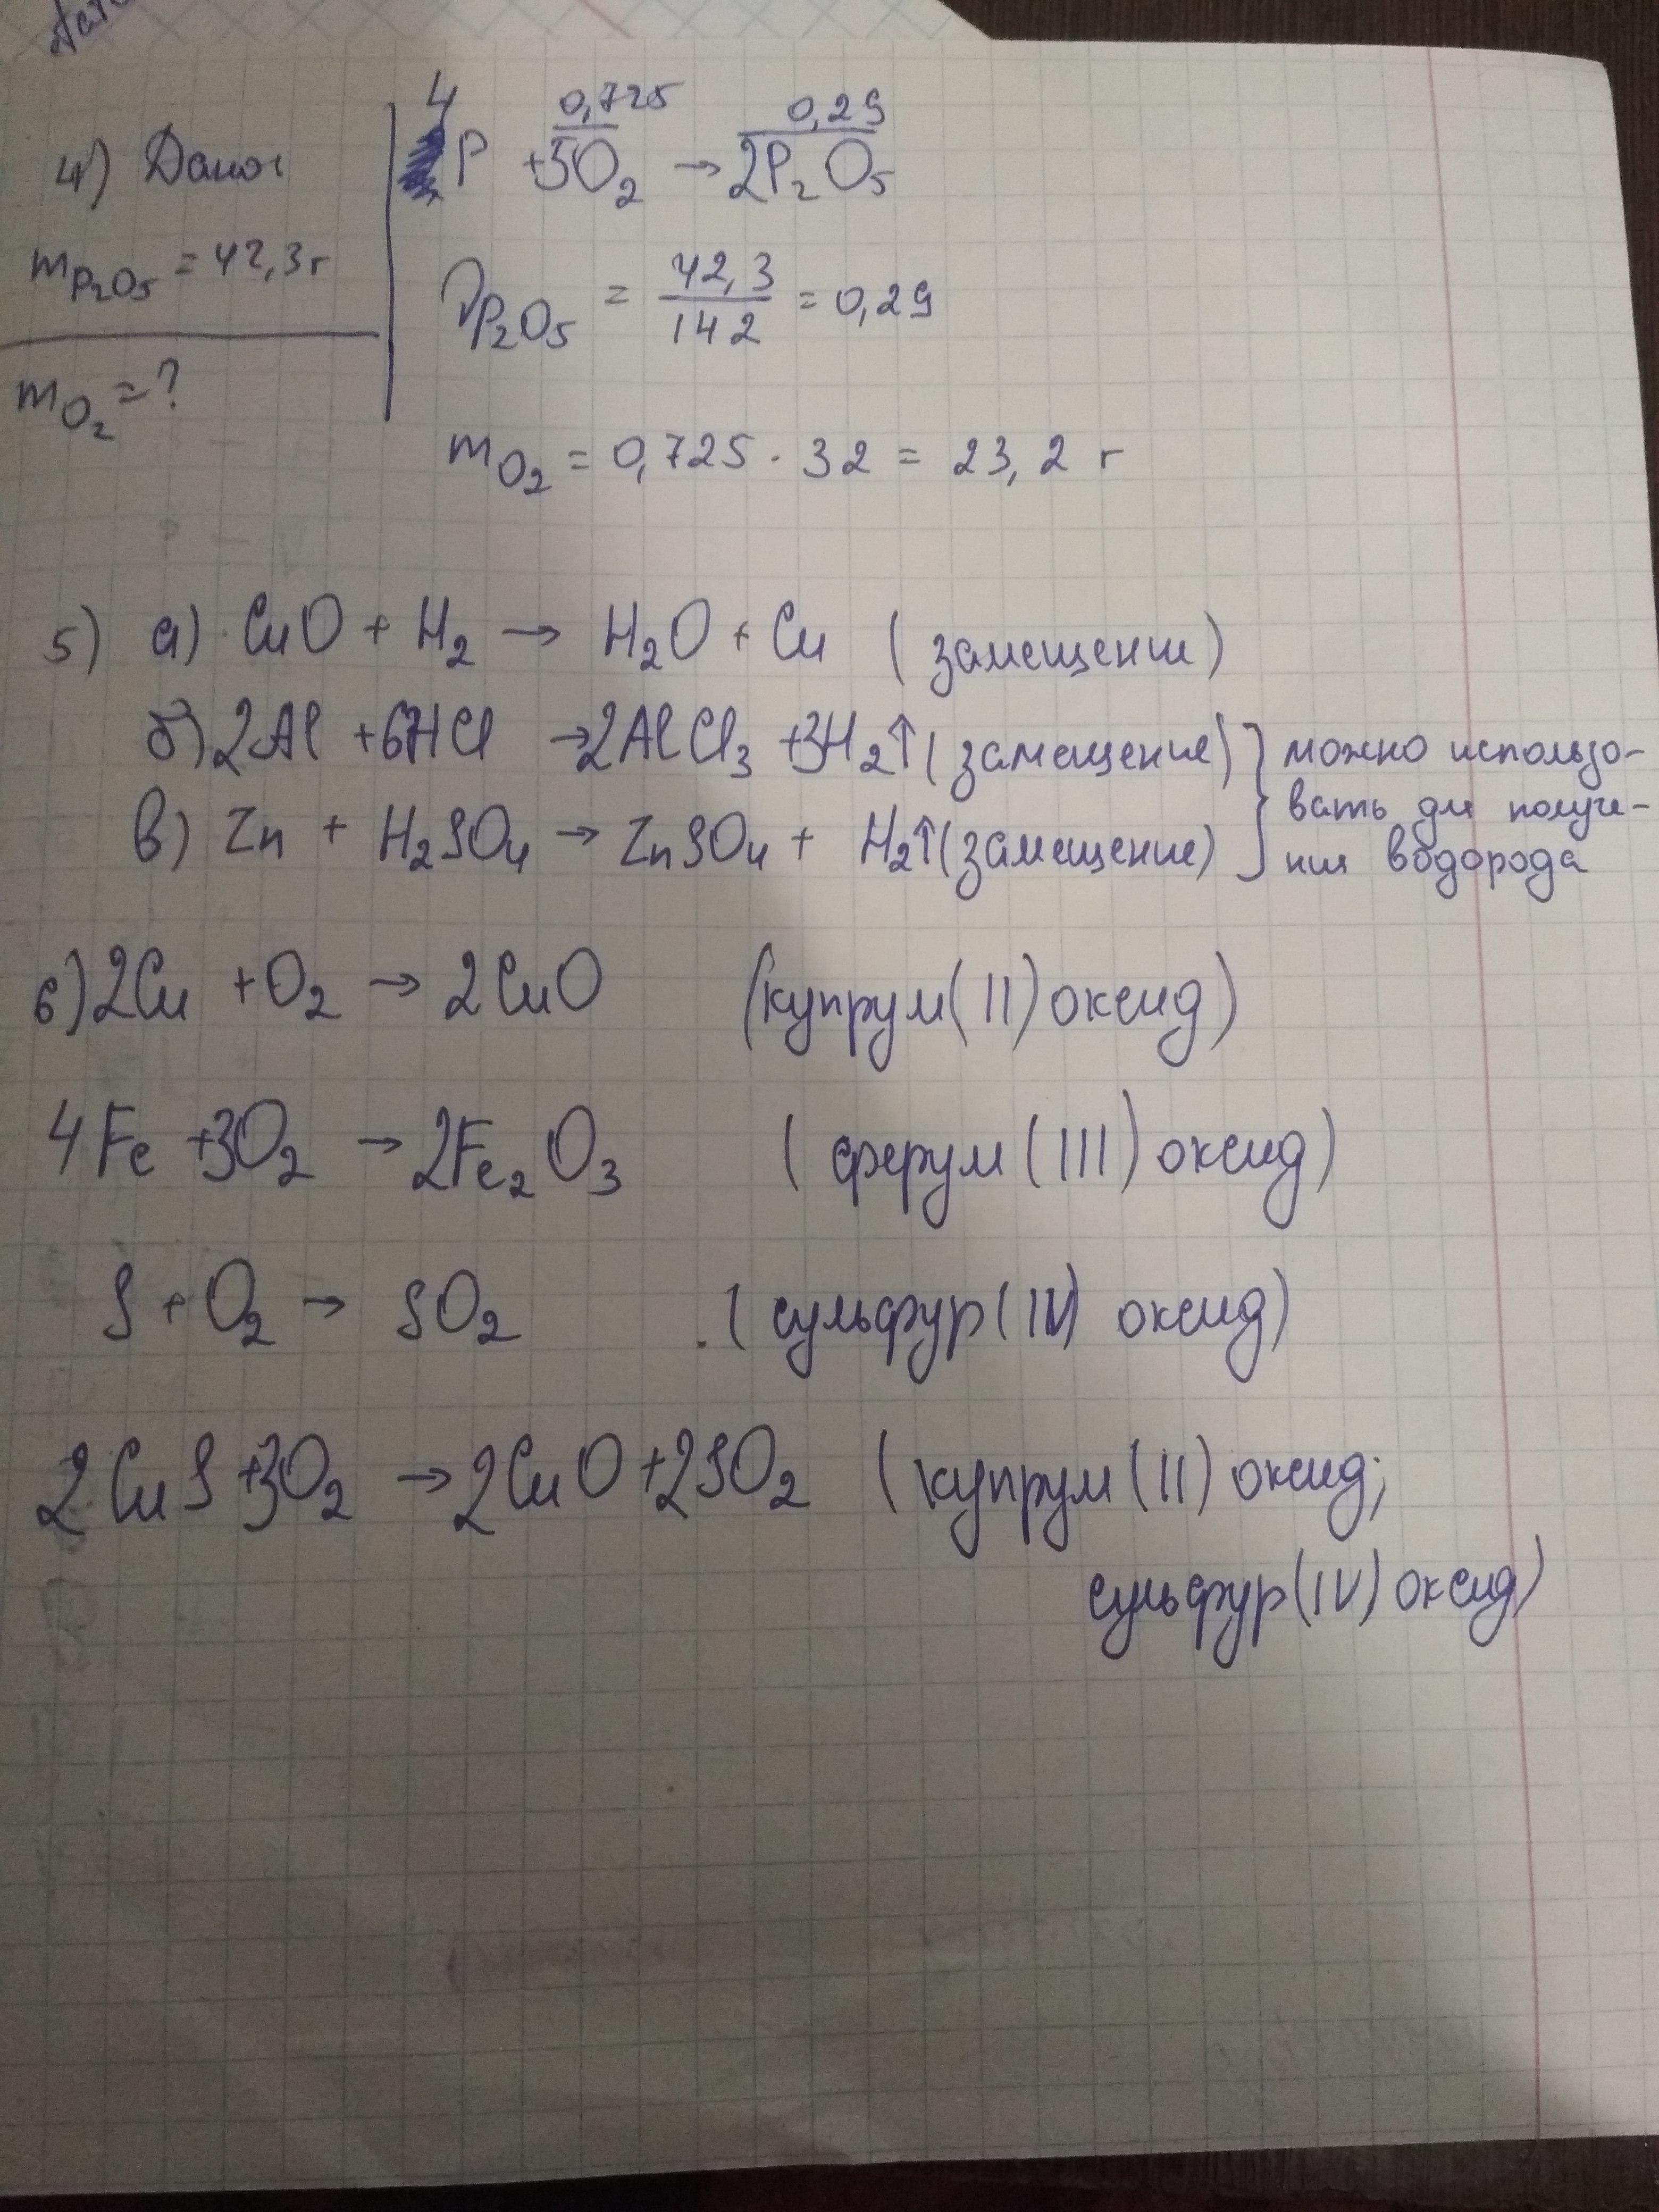 4) Дано:
m P₂O₅ = 42,3 г
m O₂ = ?
0,725 0,29
4P + 5O₂ → 2P₂O₅
νP₂O₅ = 42,3 / 142 = 0,29
m O₂ = 0,725 · 32 = 23,2 г
5) а) CuO + H₂ → H₂O + Cu (замещение)
б) 2Al + 6HCl → 2AlCl₃ + 3H₂↑ (замещение) } можно использо-
в) Zn + H₂SO₄ → ZnSO₄ + H₂↑ (замещение) вать для получе-
ния водорода
6) 2Cu + O₂ → 2CuO (купрум (II) оксид)
4Fe + 3O₂ → 2Fe₂O₃ (ферум (III) оксид)
S + O₂ → SO₂ (сульфур (IV) оксид)
2CuS + 3O₂ → 2CuO + 2SO₂ (купрум (II) оксид;
сульфур (IV) оксид)